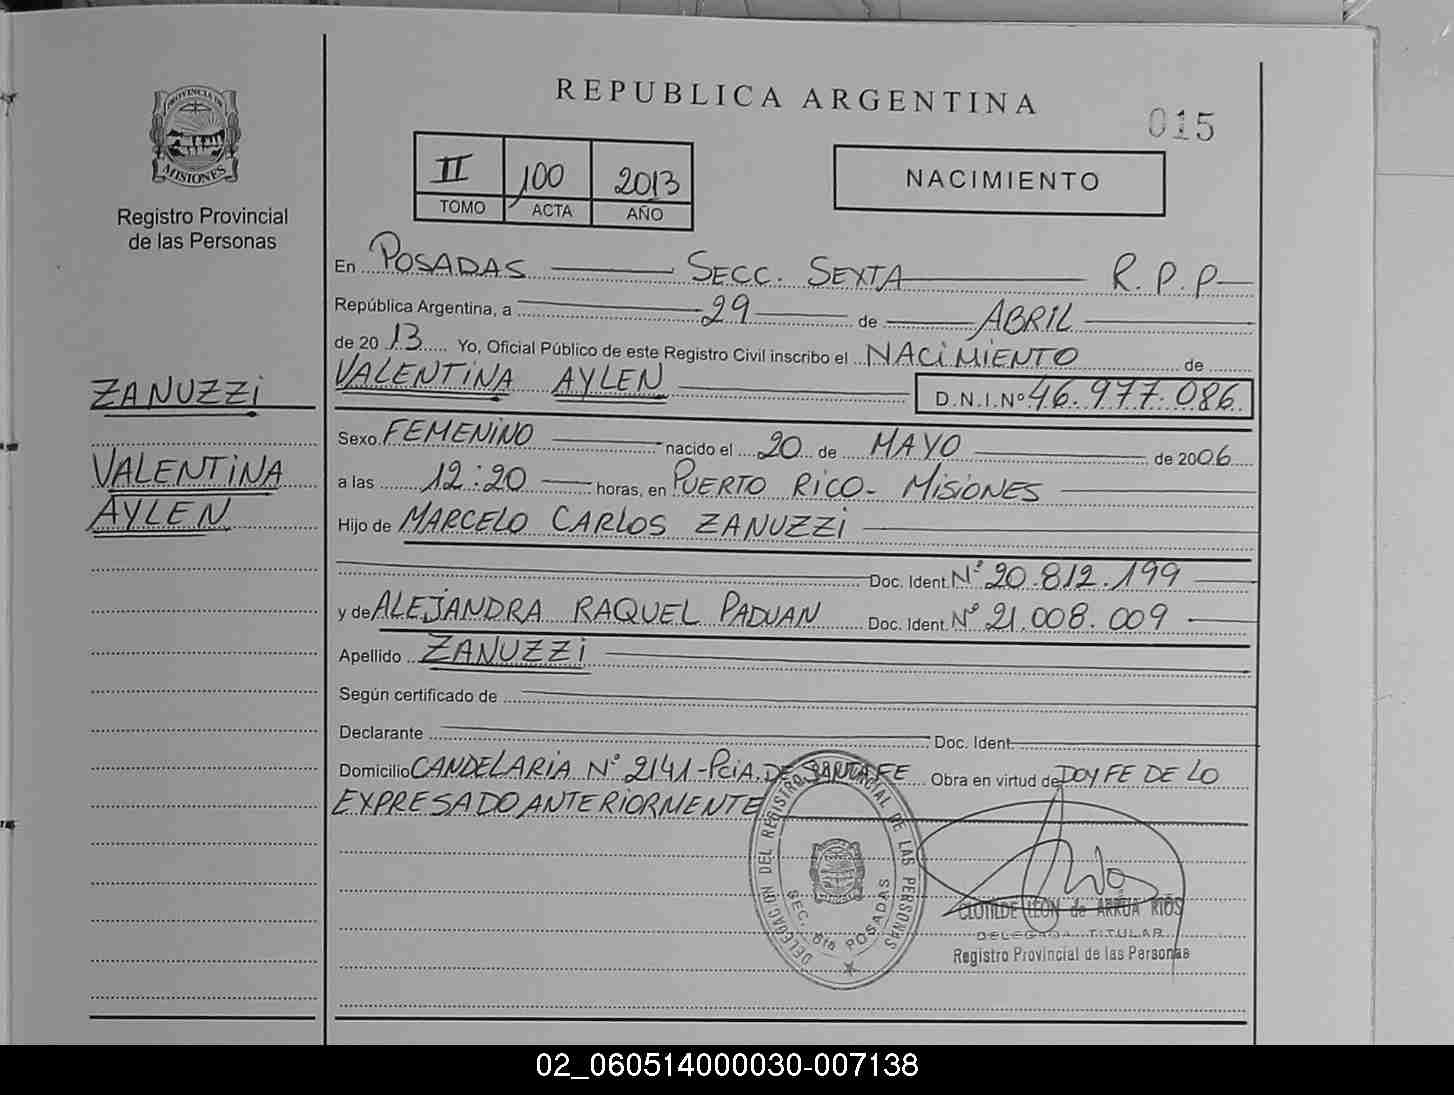 REPUBLICA ARGENTINA
015
PROVINCIA DE
MISIONES
Registro Provincial
de las Personas
II 100 2013
TOMO ACTA AÑO
NACIMIENTO
En POSADAS SECC. SEXTA R. P. P
República Argentina, a 29 de ABRIL
de 2013 Yo, Oficial Público de este Registro Civil inscribo el NACIMIENTO de
VALENTINA AYLEN D.N.I.Nº 46.977.086
ZANUZZI
VALENTINA
AYLEN
Sexo FEMENINO nacido el 20 de MAYO de 2006
a las 12:20 horas, en PUERTO RICO - MISIONES
Hijo de MARCELO CARLOS ZANUZZI
Doc. Ident. Nº 20.812.199
y de ALEJANDRA RAQUEL PADUAN Doc. Ident. Nº 21.008.009
Apellido ZANUZZI
Según certificado de
Declarante Doc. Ident.
Domicilio CANDELARIA Nº 2141 - PCIA. DE SANTA FE Obra en virtud de DOY FE DE LO
EXPRESADO ANTERIORMENTE
DELEGACION DEL REGISTRO PROVINCIAL DE LAS PERSONAS
SEC. 6ta POSADAS
CLOTILDE LEON de ARRUA RIOS
DELEGADA TITULAR
Registro Provincial de las Personas
02_060514000030-007138